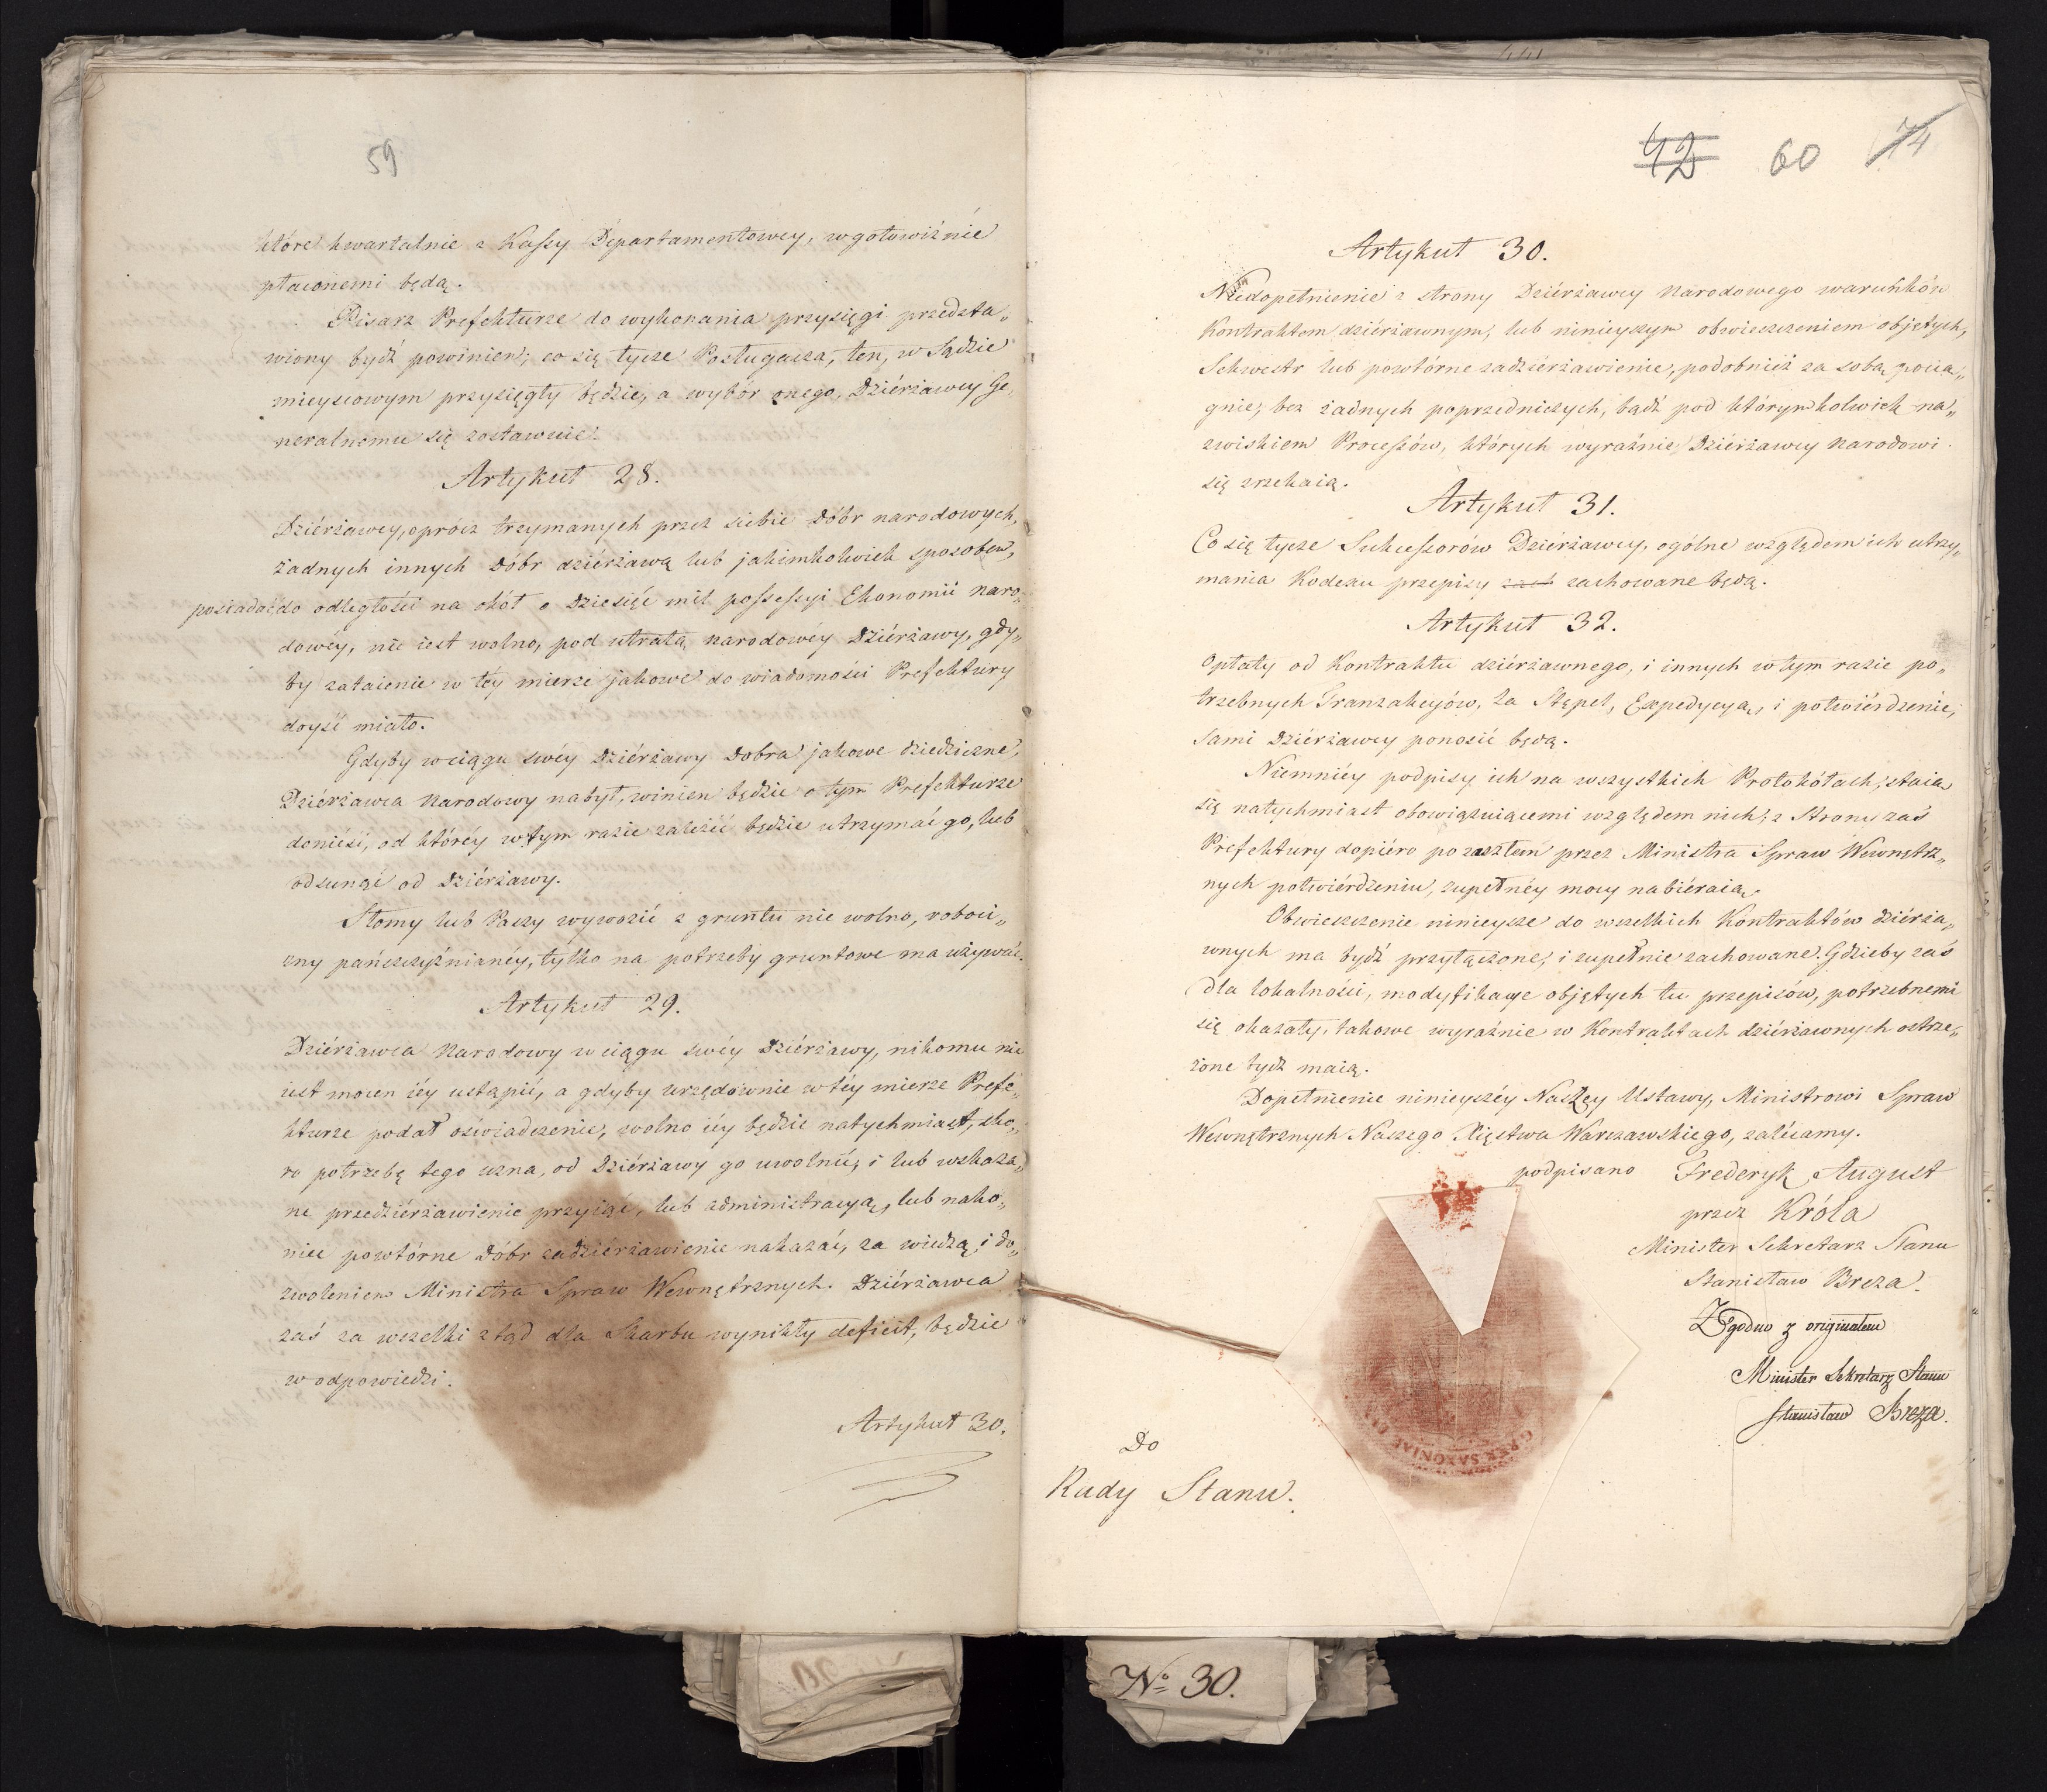 59
które kwartalnie z Kassy Departamentowey, w gotowiźnie
płaconemi będą.
Pisarz Prefekturze do wykonania przysięgi przedsta„
wiony bydź powinien; co się tycze Posługacza, ten, w Sądzie
mieyscowym przysięgły będzie, a wybór onego, Dziérżawcy Ge„
neralnemu się zostawuie.
Artykuł 28.
Dziérżawcy, oprócz trzymanych przez siebie Dóbr narodowych,
żadnych innych Dóbr dziérżawą lub jakimkolwiek sposobem,
posiadać do odległości na okół o dziesięć mil possessyi Ekonomii naro„
dowéy, nie iest wolno, pod utratą narodowéy Dziérżawy, gdy„
by zataienie w téy mierze jakowe do wiadomości Prefektury
doyść miało.
Gdyby w ciągu swéy Dziérżawy Dobra jakowe dziedziczne,
Dziérżawca Narodowy nabył, winien będzie o tym Prefekturze
donieść, od któréy w tym razie zależéć będzie utrzymać go, lub
odsunąć od Dziérżawy.
Słomy lub Paszy wywozić z gruntu nie wolno, roboci„
zny pańszczyźnianéy, tylko na potrzeby gruntowe ma używać.
Artykuł 29.
Dziérżawca Narodowy w ciągu swéy Dziérżawy, nikomu nie
iest mocen iéy ustąpić, a gdyby urzędownie w téy mierze Prefe„
kturze podał oświadczenie, wolno iéy będzie natychmiast, sko„
ro potrzebę tego uzna, od Dziérżawy go uwolnić, i lub wskaza„
ne przedziérżawienie przyiąć, lub administracyą, lub nako„
niec powtórne Dóbr zadziérżawienie nakazać, za wiedzą i do„
zwoleniem Ministra Spraw Wewnętrznych. Dziérżawca
zaś za wszelki ztąd dla Skarbu wynikły deficit, będzie
w odpowiedzi.
Artykuł 30.
42 60 74
Artykuł 30.
Niedopełnienie z strony Dziérżawcy Narodowego warunków
Kontraktem dziérżawnym, lub ninieyszym obwieszczeniem objętych,
Sekwestr lub powtórne zadziérżawienie, podobnież za sobą pocią„
gnie, bez żadnych poprzedniczych, bądź pod którymkolwiek na„
zwiskiem Processów, których wyraźnie Dziérżawcy Narodowi
się zrzekaią.
Artykuł 31.
Co się tycze Sukcessorów Dziérżawcy, ogólne względem ich utrzy„
mania Kodexu przepisy zach zachowane będą.
Artykuł 32.
Opłaty od Kontraktu dziérżawnego, i innych w tym razie po„
trzebnych Tranzakcyjów, za Stępel, Expedycyą, i potwiérdzenie,
sami Dziérżawcy ponosić będą.
Niemniéy podpisy ich na wszystkich Protokółach, staią
się natychmiast obowiązuiącemi względem nich, z Strony zaś
Prefektury dopiéro po zaszłem przez Ministra Spraw Wewnętrz„
nych potwiérdzeniu, zupełnéy mocy nabiéraią.
Obwieszczenie ninieysze do wszelkich Kontraktów dziérża„
wnych ma bydź przyłączone, i zupełnie zachowane. Gdzieby zaś
dla lokalności, modyfikacye objętych tu przepisów, potrzebnemi
się okazały, takowe wyraźnie w Kontraktach dziérżawnych ostrze„
żone bydź maią.
Dopełnienie ninieyszéy Naszéy Ustawy, Ministrowi Spraw
Wewnętrznych Naszego Xięstwa Warszawskiego, zalécamy.
podpisano Frederyk August
przez Króla
Minister Sekretarz Stanu
Stanisław Breza.
Zgodno z originałem
Minister Sekretarz Stanu
Stanisław Breza.
Do
Rady Stanu.
No 30.